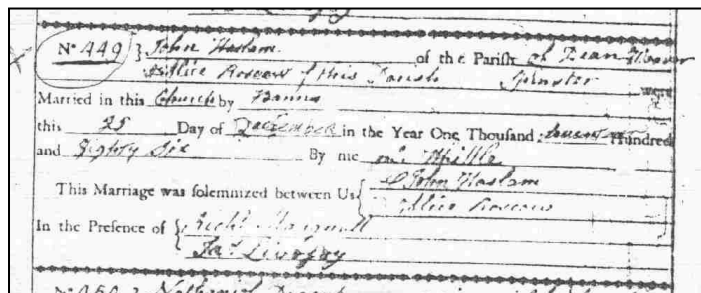 Nº 449 } John Haslam of the Parish of Dean Weaver
& Alice Roscow of this Parish Spinster were
Married in this Church by Banns
this 25 Day of December in the Year One Thousand Seven Hundred
and Eighty Six By me Whittle
This Marriage was solemnized between Us { John Haslam
Alice Roscow
In the Presence of { Richd
Jas. Livesay
Nº 450 } Nathaniel